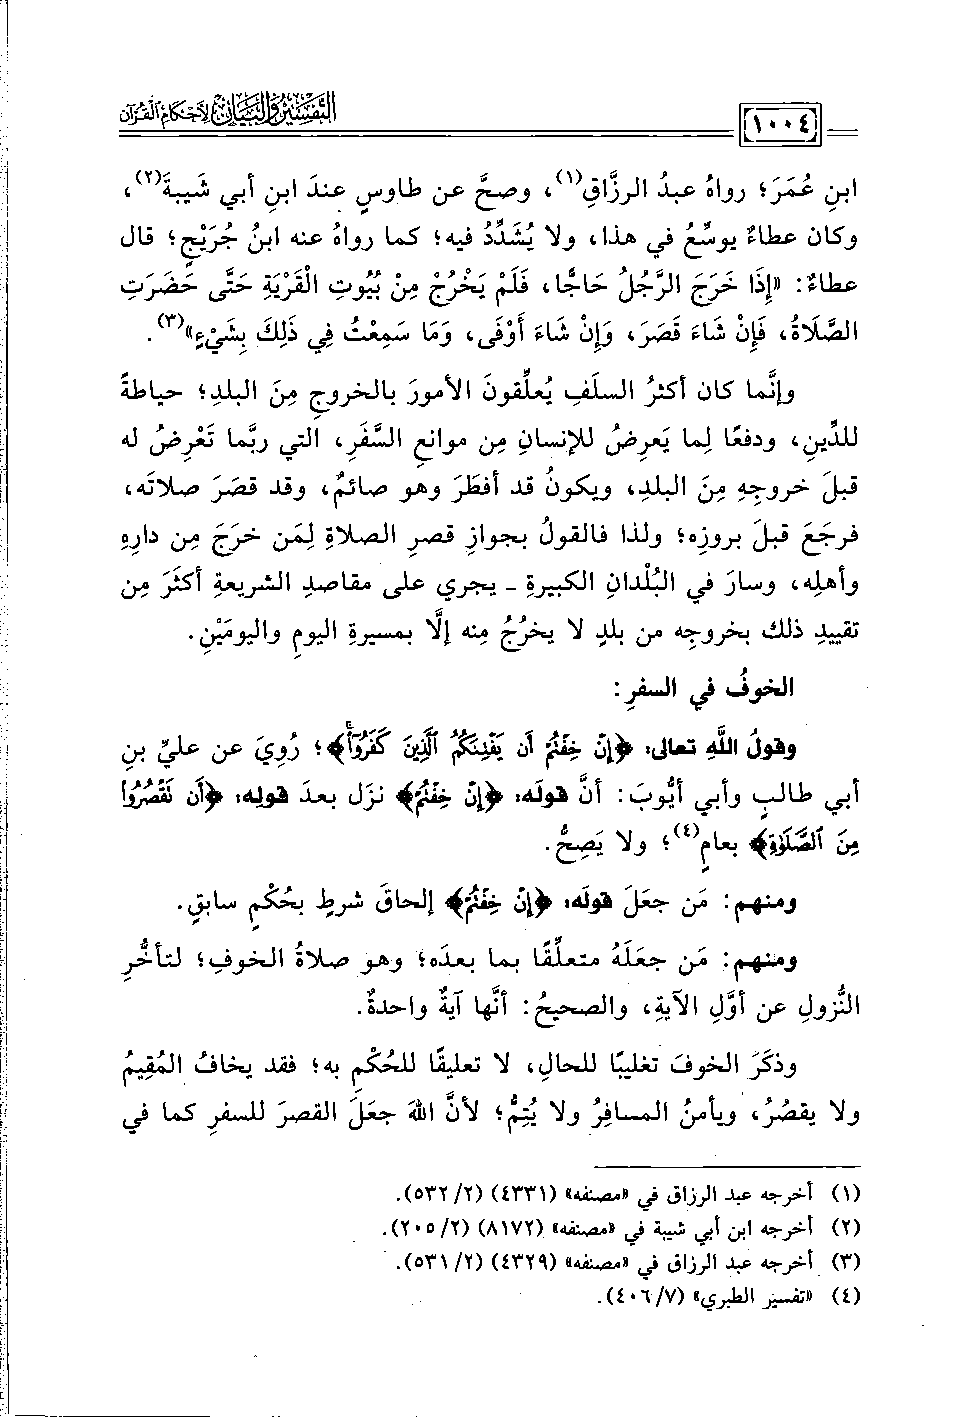 التفسير والبيان لأحكام القرآن
١٠٠٤
ابنِ عُمَرَ؛ رواهُ عبدُ الرزَّاقِ(١)، وصحَّ عن طاوسٍ عندَ ابنِ أبي شَيْبةَ(٢)،
وكان عطاءٌ يوسِّعُ في هذا، ولا يُشَدِّدُ فيه؛ كما رواهُ عنه ابنُ جُرَيْجٍ؛ قال
عطاءٌ: «إِذَا خَرَجَ الرَّجُلُ حَاجًّا، فَلَمْ يَخْرُجْ مِنْ بُيُوتِ الْقَرْيَةِ حَتَّى حَضَرَتِ
الصَّلَاةُ، فَإِنْ شَاءَ قَصَرَ، وَإِنْ شَاءَ أَوْفَى، وَمَا سَمِعْتُ فِي ذَلِكَ بِشَيْءٍ»(٣).
وإنَّما كان أكثرُ السلَفِ يُعلِّقونَ الأمورَ بالخروجِ مِنَ البلدِ؛ حياطةً
للدِّينِ، ودفعًا لِما يَعرِضُ للإنسانِ مِن موانعِ السَّفَرِ، التي ربَّما تَعْرِضُ له
قبلَ خروجِهِ مِنَ البلدِ، ويكونُ قد أفطَرَ وهو صائمٌ، وقد قصَرَ صلاتَه،
فرجَعَ قبلَ بروزِه؛ ولذا فالقولُ بجوازِ قصرِ الصلاةِ لِمَن خرَجَ مِن دارِهِ
وأهلِه، وسارَ في البُلْدانِ الكبيرةِ ـ يجري على مقاصدِ الشريعةِ أكثَرَ مِن
تقييدِ ذلك بخروجِه من بلدٍ لا يخرُجُ مِنه إلَّا بمسيرةِ اليومِ واليومَيْنِ.
الخوفُ في السفرِ:
وقولُ اللَّهِ تعالى: ﴿إِنْ خِفْتُمْ أَن يَفْتِنَكُمُ ٱلَّذِينَ كَفَرُوٓاْ﴾؛ رُوِيَ عن عليِّ بنِ
أبي طالبٍ وأبي أيُّوبَ: أنَّ قولَه: ﴿إِنْ خِفْتُمْ﴾ نزَل بعدَ قولِه: ﴿أَن تَقْصُرُواْ
مِنَ ٱلصَّلَوٰةِ﴾ بعامٍ(٤)؛ ولا يَصِحُّ.
ومنهم: مَن جعَلَ قولَه: ﴿إِنْ خِفْتُمْ﴾ إلحاقَ شرطٍ بحُكْمٍ سابقٍ.
ومنهم: مَن جعَلَهُ متعلِّقًا بما بعدَه؛ وهو صلاةُ الخوفِ؛ لتأخُّرِ
النُّزولِ عن أوَّلِ الآيةِ، والصحيحُ: أنَّها آيةٌ واحدةٌ.
وذكَرَ الخوفَ تغليبًا للحالِ، لا تعليقًا للحُكْمِ به؛ فقد يخافُ المُقِيمُ
ولا يقصُرُ، ويأمنُ المسافِرُ ولا يُتِمُّ؛ لأنَّ اللهَ جعَلَ القصرَ للسفرِ كما في
(١) أخرجه عبد الرزاق في «مصنفه» (٤٣٣١) (٢/ ٥٣٢).
(٢) أخرجه ابن أبي شيبة في «مصنفه» (٨١٧٢) (٢/ ٢٠٥).
(٣) أخرجه عبد الرزاق في «مصنفه» (٤٣٢٩) (٢/ ٥٣١).
(٤) «تفسير الطبري» (٧/ ٤٠٦).